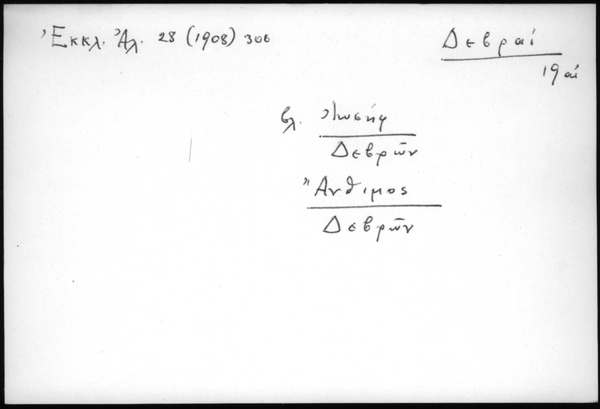 Ἐκκλ. Ἀλ. 28 (1908) 306
Δεβραί
19 αἰ
βλ. Ἰωσήφ
Δεβρῶν
Ἄνθιμος
Δεβρῶν